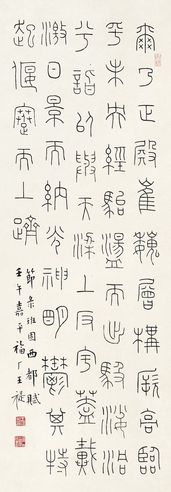 爾乃正殿崔巍層構厥高臨
乎未央經駘盪而出馺娑洞
詣以與天梁上反宇蓋戴
激日景而納光神明鬱其特
起偃蹇而上躋
節彔班固西都賦
壬午嘉平福厂王禔